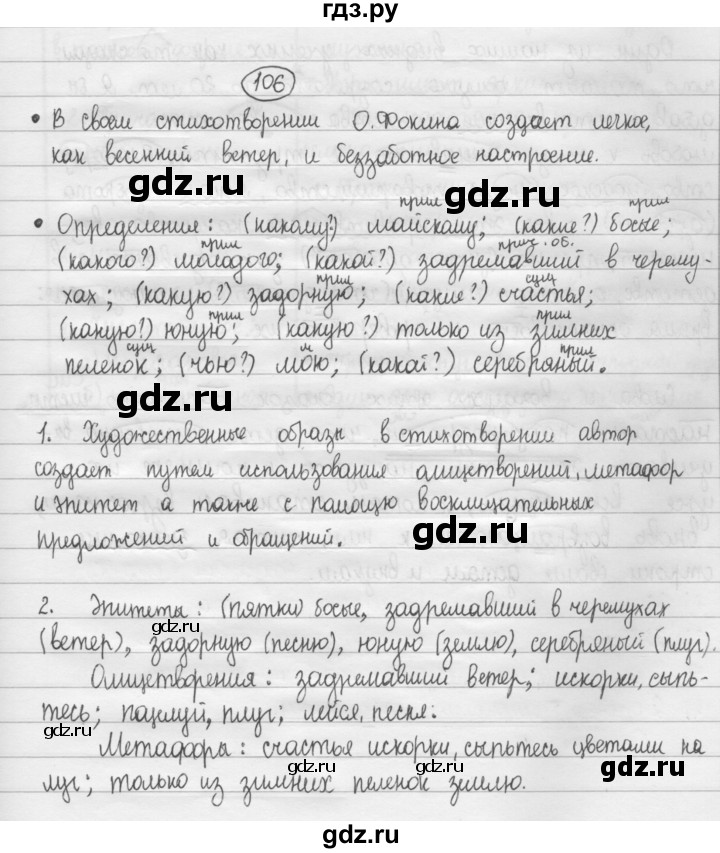 гдз.ру
106
• В своем стихотворении О.Фокина создает легкое,
как весенний ветер, и беззаботное настроение.
gdz.ru
прил прил
• Определение: (какому?) майскому; (какие?) босые;
прил прич. об.
(какого?) молодого; (какой?) задремавший в черему-
прил сущ
хах; (какую?) задорную; (какие?) счастья;
прил прил
(какую?) юную; (какую?) только из зимних
сущ м прил
пеленок; (чью?) мою; (какой?) серебряный.
gdz.ru
1. Художественные образы в стихотворении автор
создает путем использования олицетворений, метафор
и эпитет а также с помощью восклицательных
предложений и обращений.
gdz.ru
2. Эпитеты: (пятки) босые, задремавший в черемухах
gdz.ru
(ветер), задорную (песню), юную (землю), серебряный (плуг).
Олицетворения: задремавший ветер; искорки, сыпь-
тесь; поцелуй, плуг; лейся, песня.
gdz.ru
Метафоры: счастья искорки, сыпьтесь цветами на
gdz.ru
луг; только из зимних пеленок землю.
gdz.ru